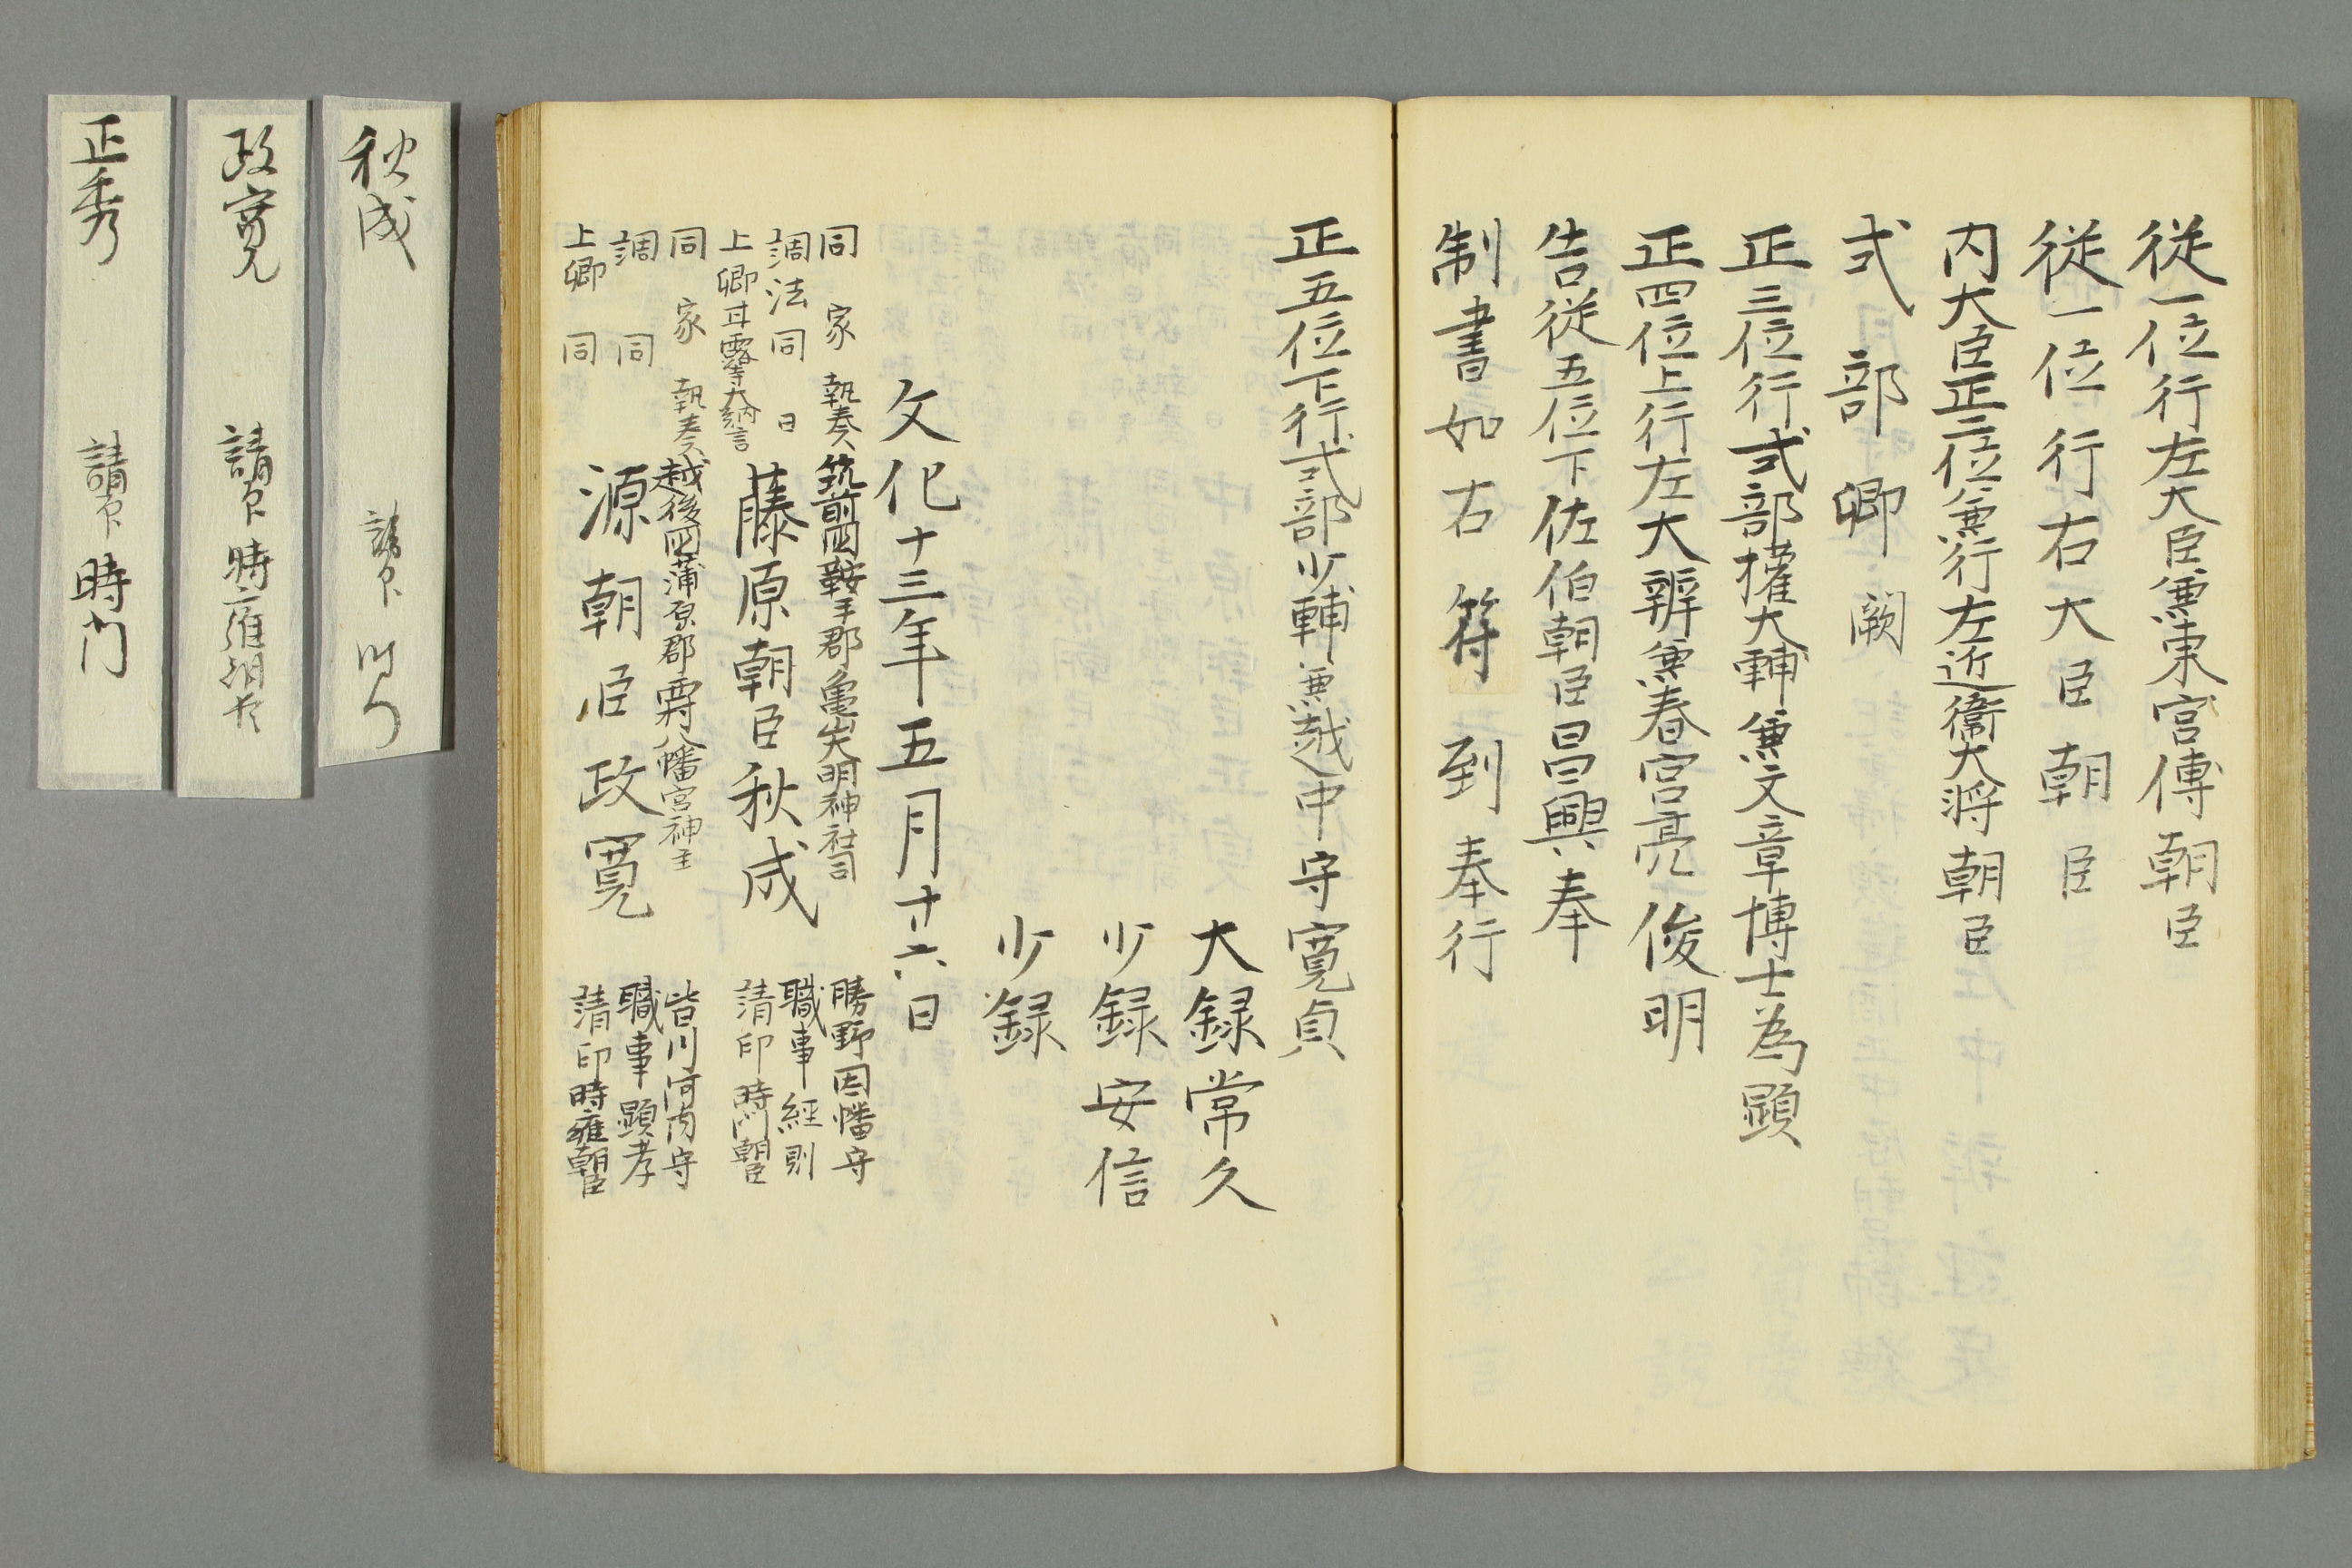 従一位行左大臣兼東宮傅朝臣
従一位行右大臣朝臣
内大臣正二位兼行左近衞大将朝臣
式部卿闕
正三位行式部権大輔兼文章博士為顕
正四位上行左大辨兼春宮亮俊明
告従五位下佐伯朝臣昌興奉
制書如右符到奉行
正五位下行式部少輔兼越中守寛貞
大録常久
少録安信
少録
文化十三年五月廿六日
同家執奏筑前国鞍手郡亀山大明神社司 勝野因幡守
調法同日 職事経則
上卿 大納言 藤原朝臣秋成 請印時門朝臣
同家執奏越後国蒲原郡 八幡宮神主 皆川河内守
調同 職事顕孝
上卿同 源朝臣政寛 請印時雍朝臣
秋成 請印 時門
政寛 請印 時雍朝臣
正秀 請印 時門